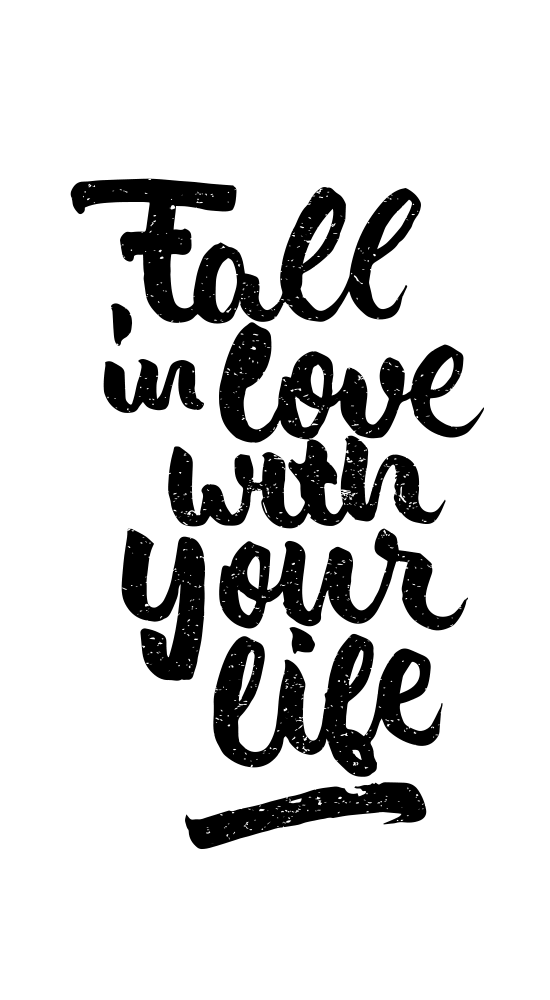 Fall
in love
with
your
life